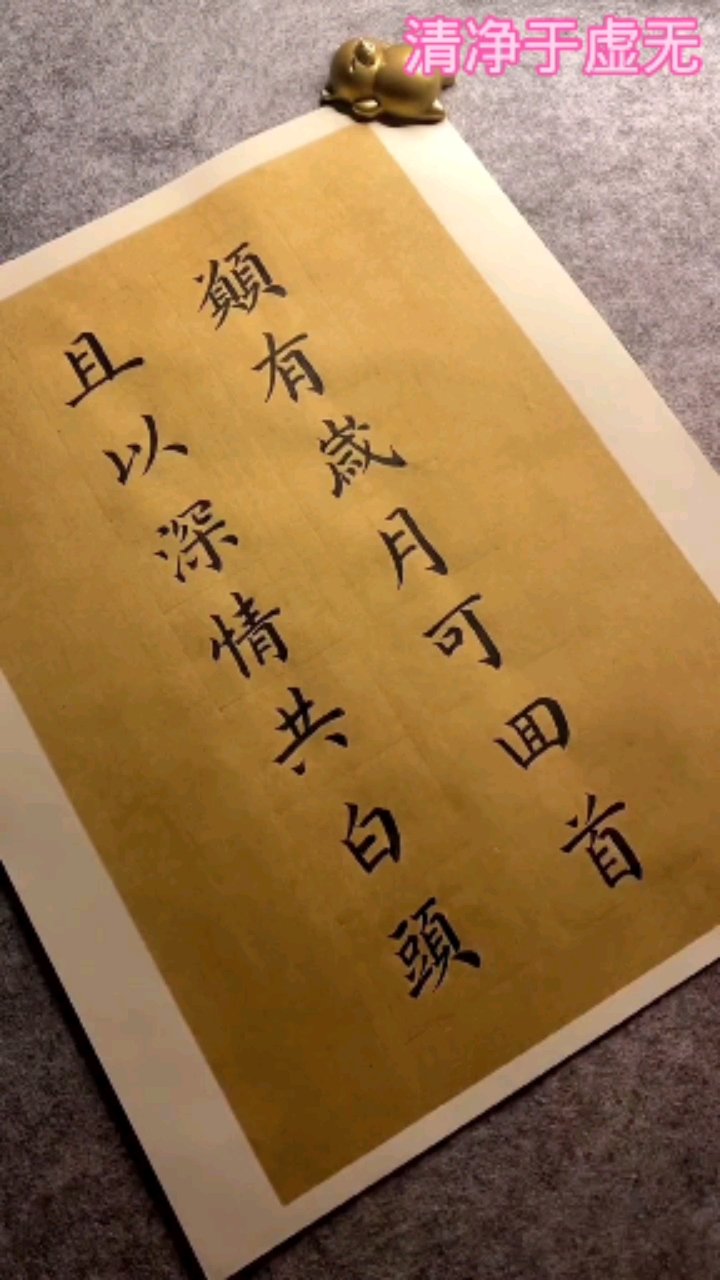 清净于虚无
願有歲月可回首
且以深情共白頭